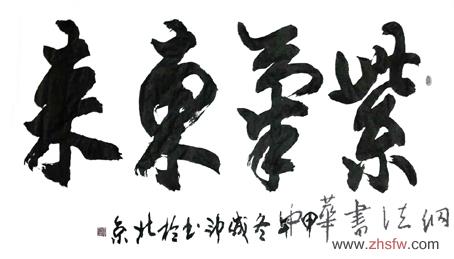 紫氣東来
甲午冬书於北京
中華書法網
www.zhsfw.com